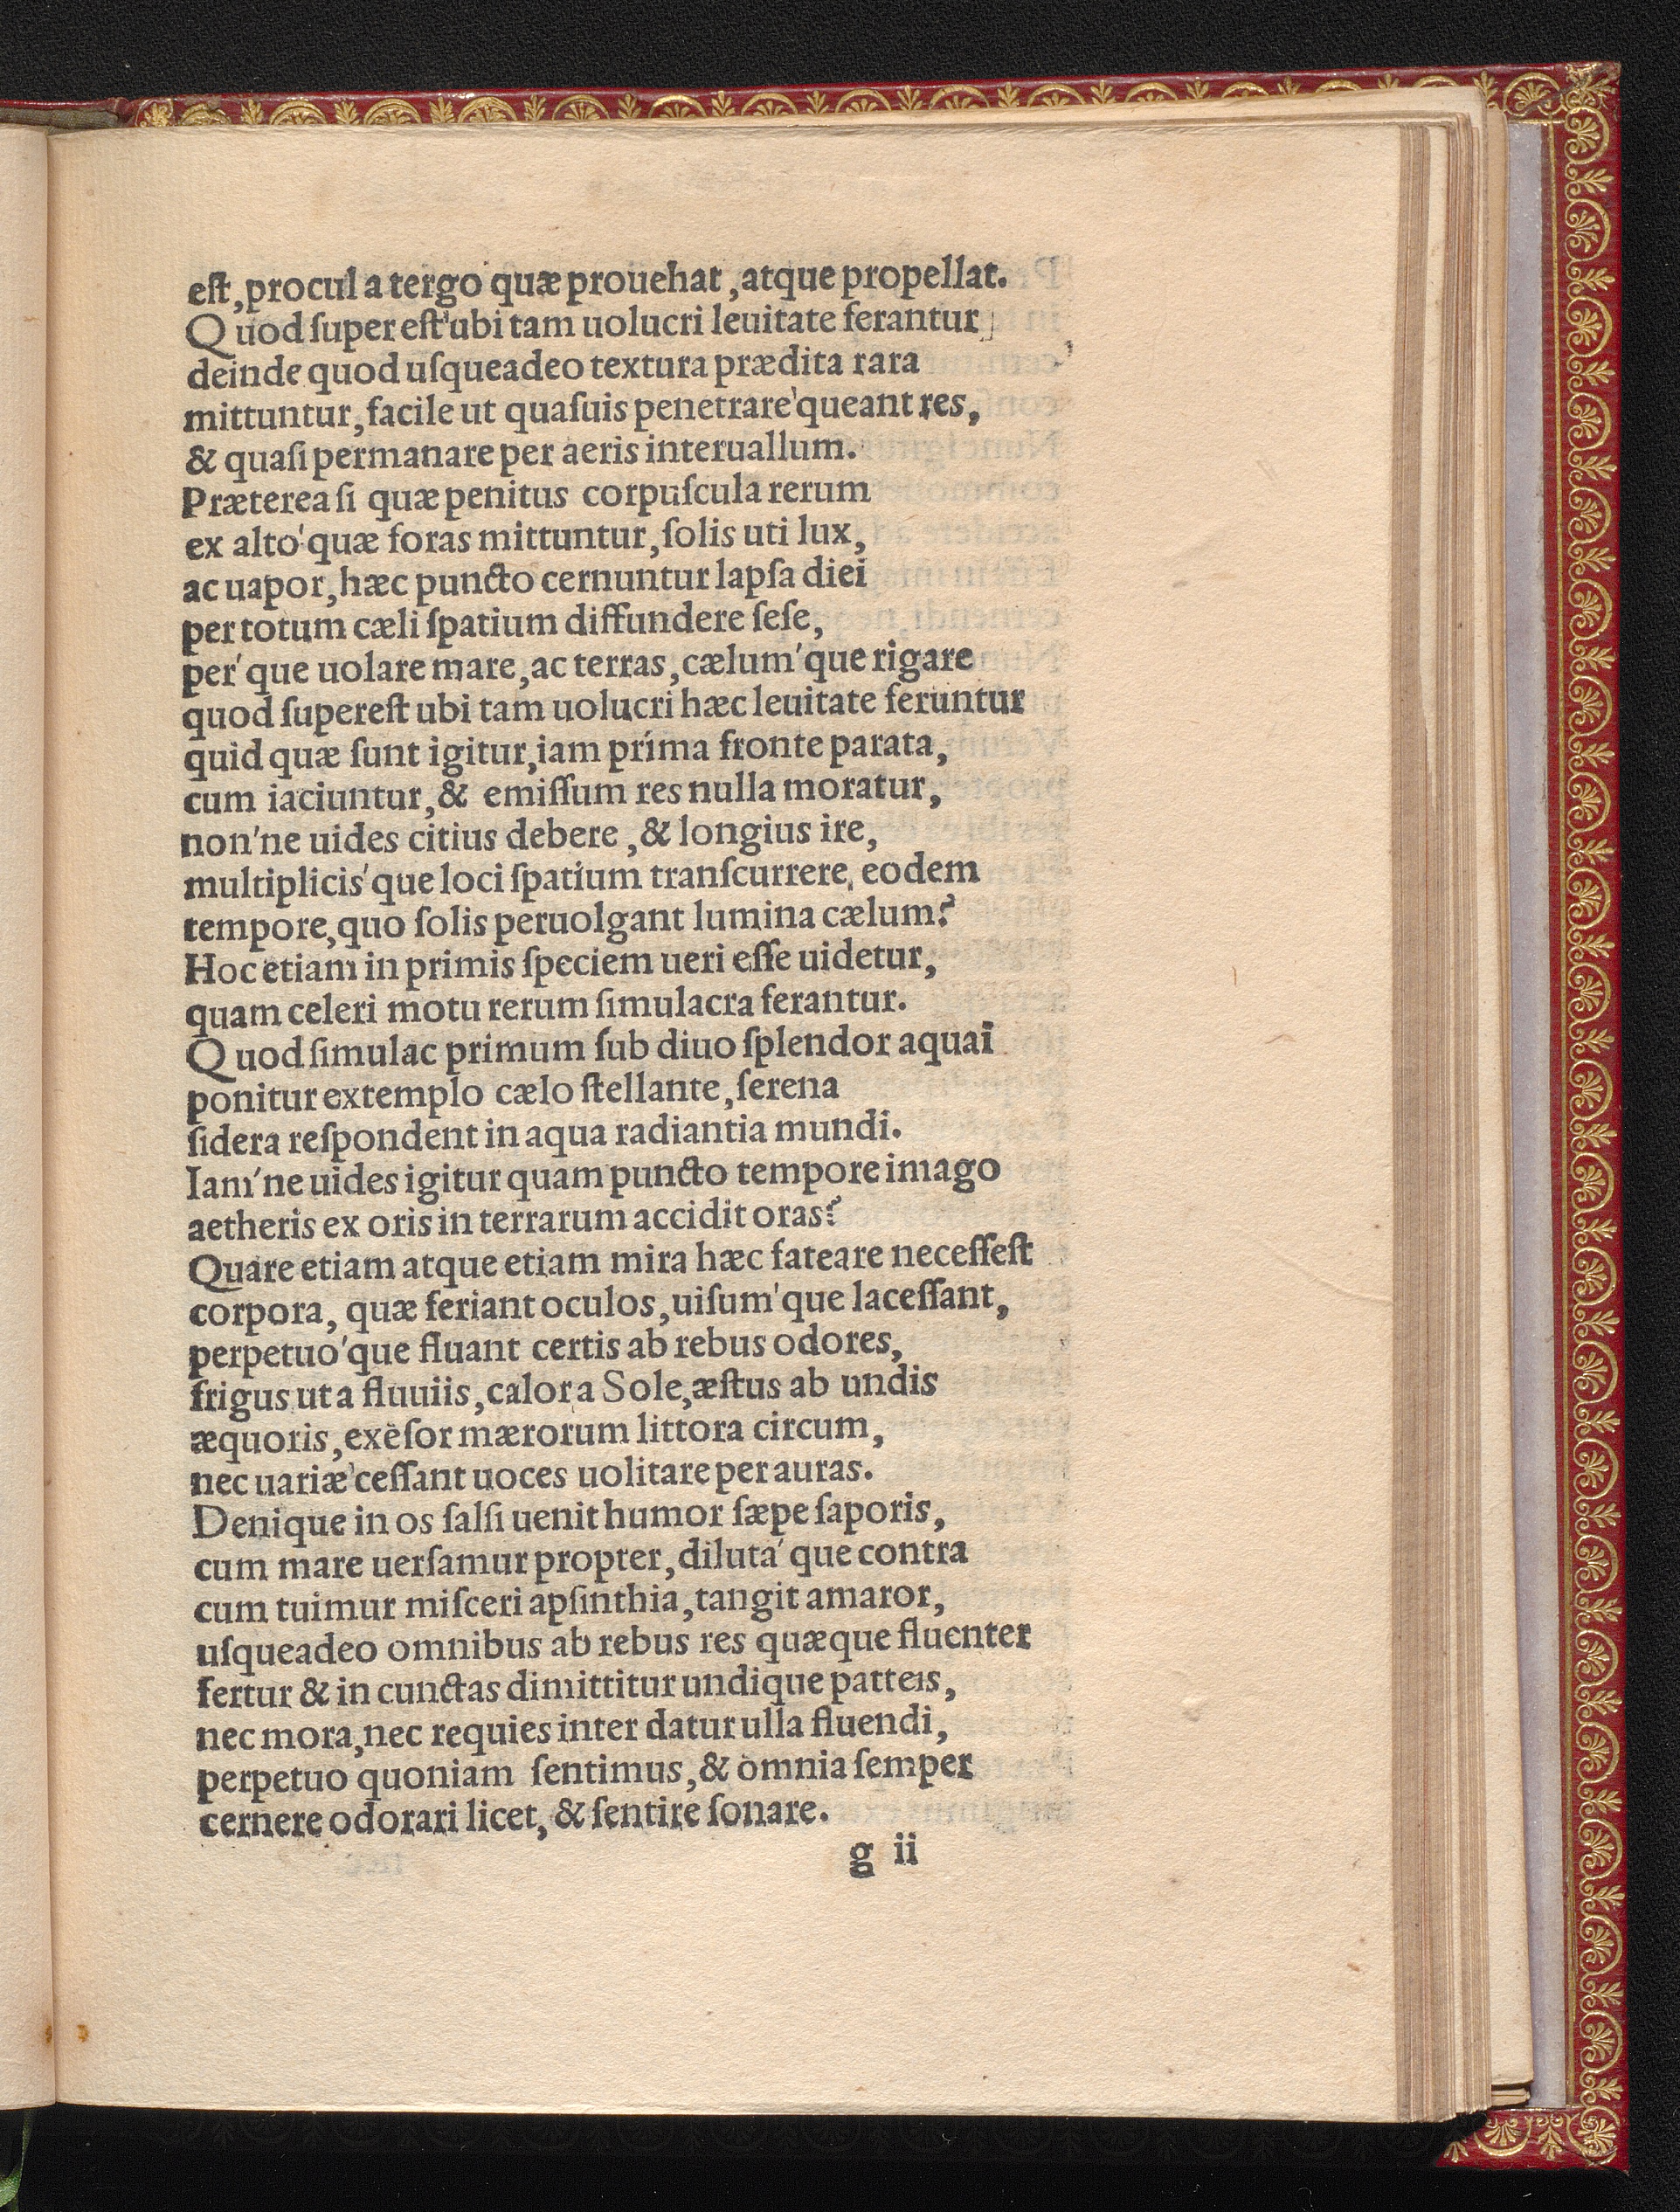 eſt, procul a tergo quæ prouehat, atque propellat.
Quod ſuper eſt'ubi tam uolucri leuitate ferantur
deinde quod uſqueadeo textura prædita rara
mittuntur, facile ut quaſuis penetrare'queant res,
& quaſi permanare per aeris interuallum.
Præterea ſi quæ penitus corpuſcula rerum
ex alto'quæ foras mittuntur, ſolis uti lux,
ac uapor, hæc puncto cernuntur lapſa diei
per totum cæli ſpatium diffundere ſeſe,
per'que uolare mare, ac terras, cælum'que rigare
quod ſupereſt ubi tam uolucri hæc leuitate feruntur
quid quæ ſunt igitur, iam príma fronte parata,
cum iaciuntur, & emiſſum res nulla moratur,
non'ne uides citius debere, & longius ire,
multiplicis'que loci ſpatium tranſcurrere, eodem
tempore, quo ſolis peruolgant lumina cælum?
Hoc etiam in primis ſpeciem ueri eſſe uidetur,
quam celeri motu rerum ſimulacra ferantur.
Quod ſimulac primum ſub diuo ſplendor aquai
ponitur extemplo cælo ſtellante, ſerena
ſidera reſpondent in aqua radiantia mundi.
Iam'ne uides igitur quam puncto tempore imago
aetheris ex oris in terrarum accidit oras?
Quare etiam atque etiam mira hæc fateare neceſſeſt
corpora, quæ feriant oculos, uiſum'que laceſſant,
perpetuo'que fluant certis ab rebus odores,
frigus ut a fluuiis, calor a Sole, æſtus ab undis
æquoris, exeſor mærorum littora circum,
nec uariæ'ceſſant uoces uolitare per auras.
Denique in os ſalſi uenit humor ſæpe ſaporis,
cum mare uerſamur propter, diluta'que contra
cum tuimur miſceri apſinthia, tangit amaror,
uſqueadeo omnibus ab rebus res quæque fluenter
fertur & in cunctas dimittitur undique patteis,
nec mora, nec requies inter datur ulla fluendi,
perpetuo quoniam ſentimus, & omnia ſemper
cernere odorari licet, & ſentire ſonare.
g ii